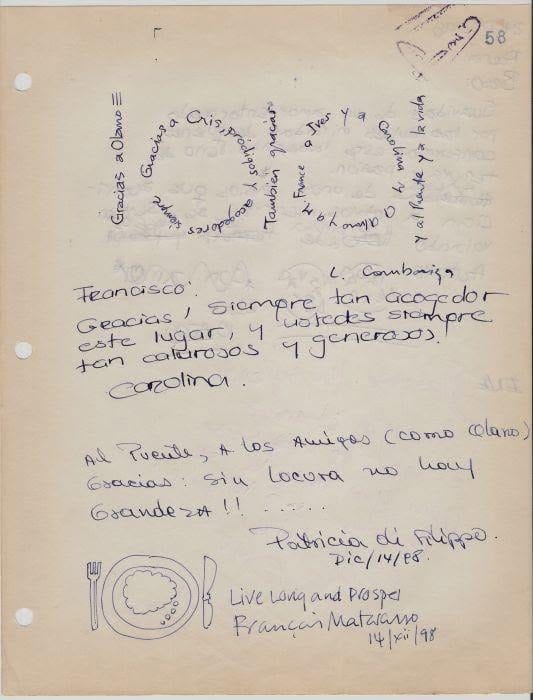 58
Gracias a Olano
Gracias a Cris, por
lindos y acogedores
siempre
También gracias
a Iren y a
France
a alma y a
y al Puente y a la vida
L. Comboniza
Francisco:
Gracias, siempre tan acogedor
este lugar, y ustedes siempre
tan calurosos y generosos.
Carolina.
Al Puente, A los Amigos (como Olano)
Gracias: Sin Locura no hay
GrandezA!! .....
Patricia di Filippo.
Dic/14/98.
Live Long and Prosper
François Matarasso
14/xii/98